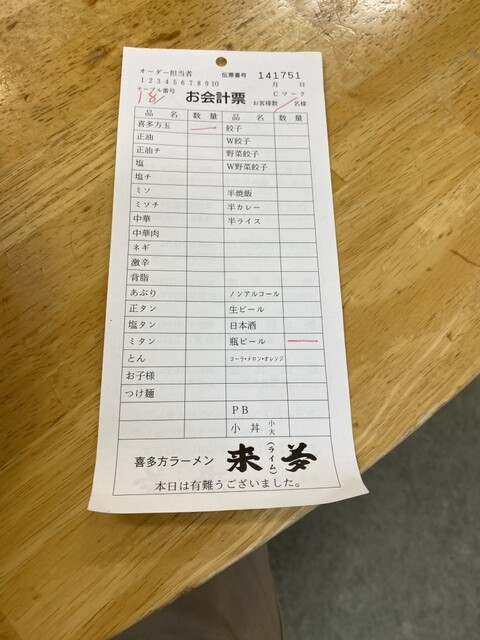 オーダー担当者 伝票番号 141751
1 2 3 4 5 6 7 8 9 10 月 日
テーブル番号 Cマーク
18 お会計票 お客様数 / 名様
品名 数量 品名 数量
喜多方玉 一 餃子
正油 W餃子
正油チ 野菜餃子
塩 W野菜餃子
塩チ
ミソ 半焼飯
ミソチ 半カレー
中華 半ライス
中華肉
ネギ
激辛
背脂
あぶり ノンアルコール
正タン 生ビール
塩タン 日本酒
ミタン 瓶ビール 一
とん コーラ・メロン・オレンジ
お子様
つけ麺
PB
小丼 小大
喜多方ラーメン 来夢 (ライム)
本日は有難うございました。